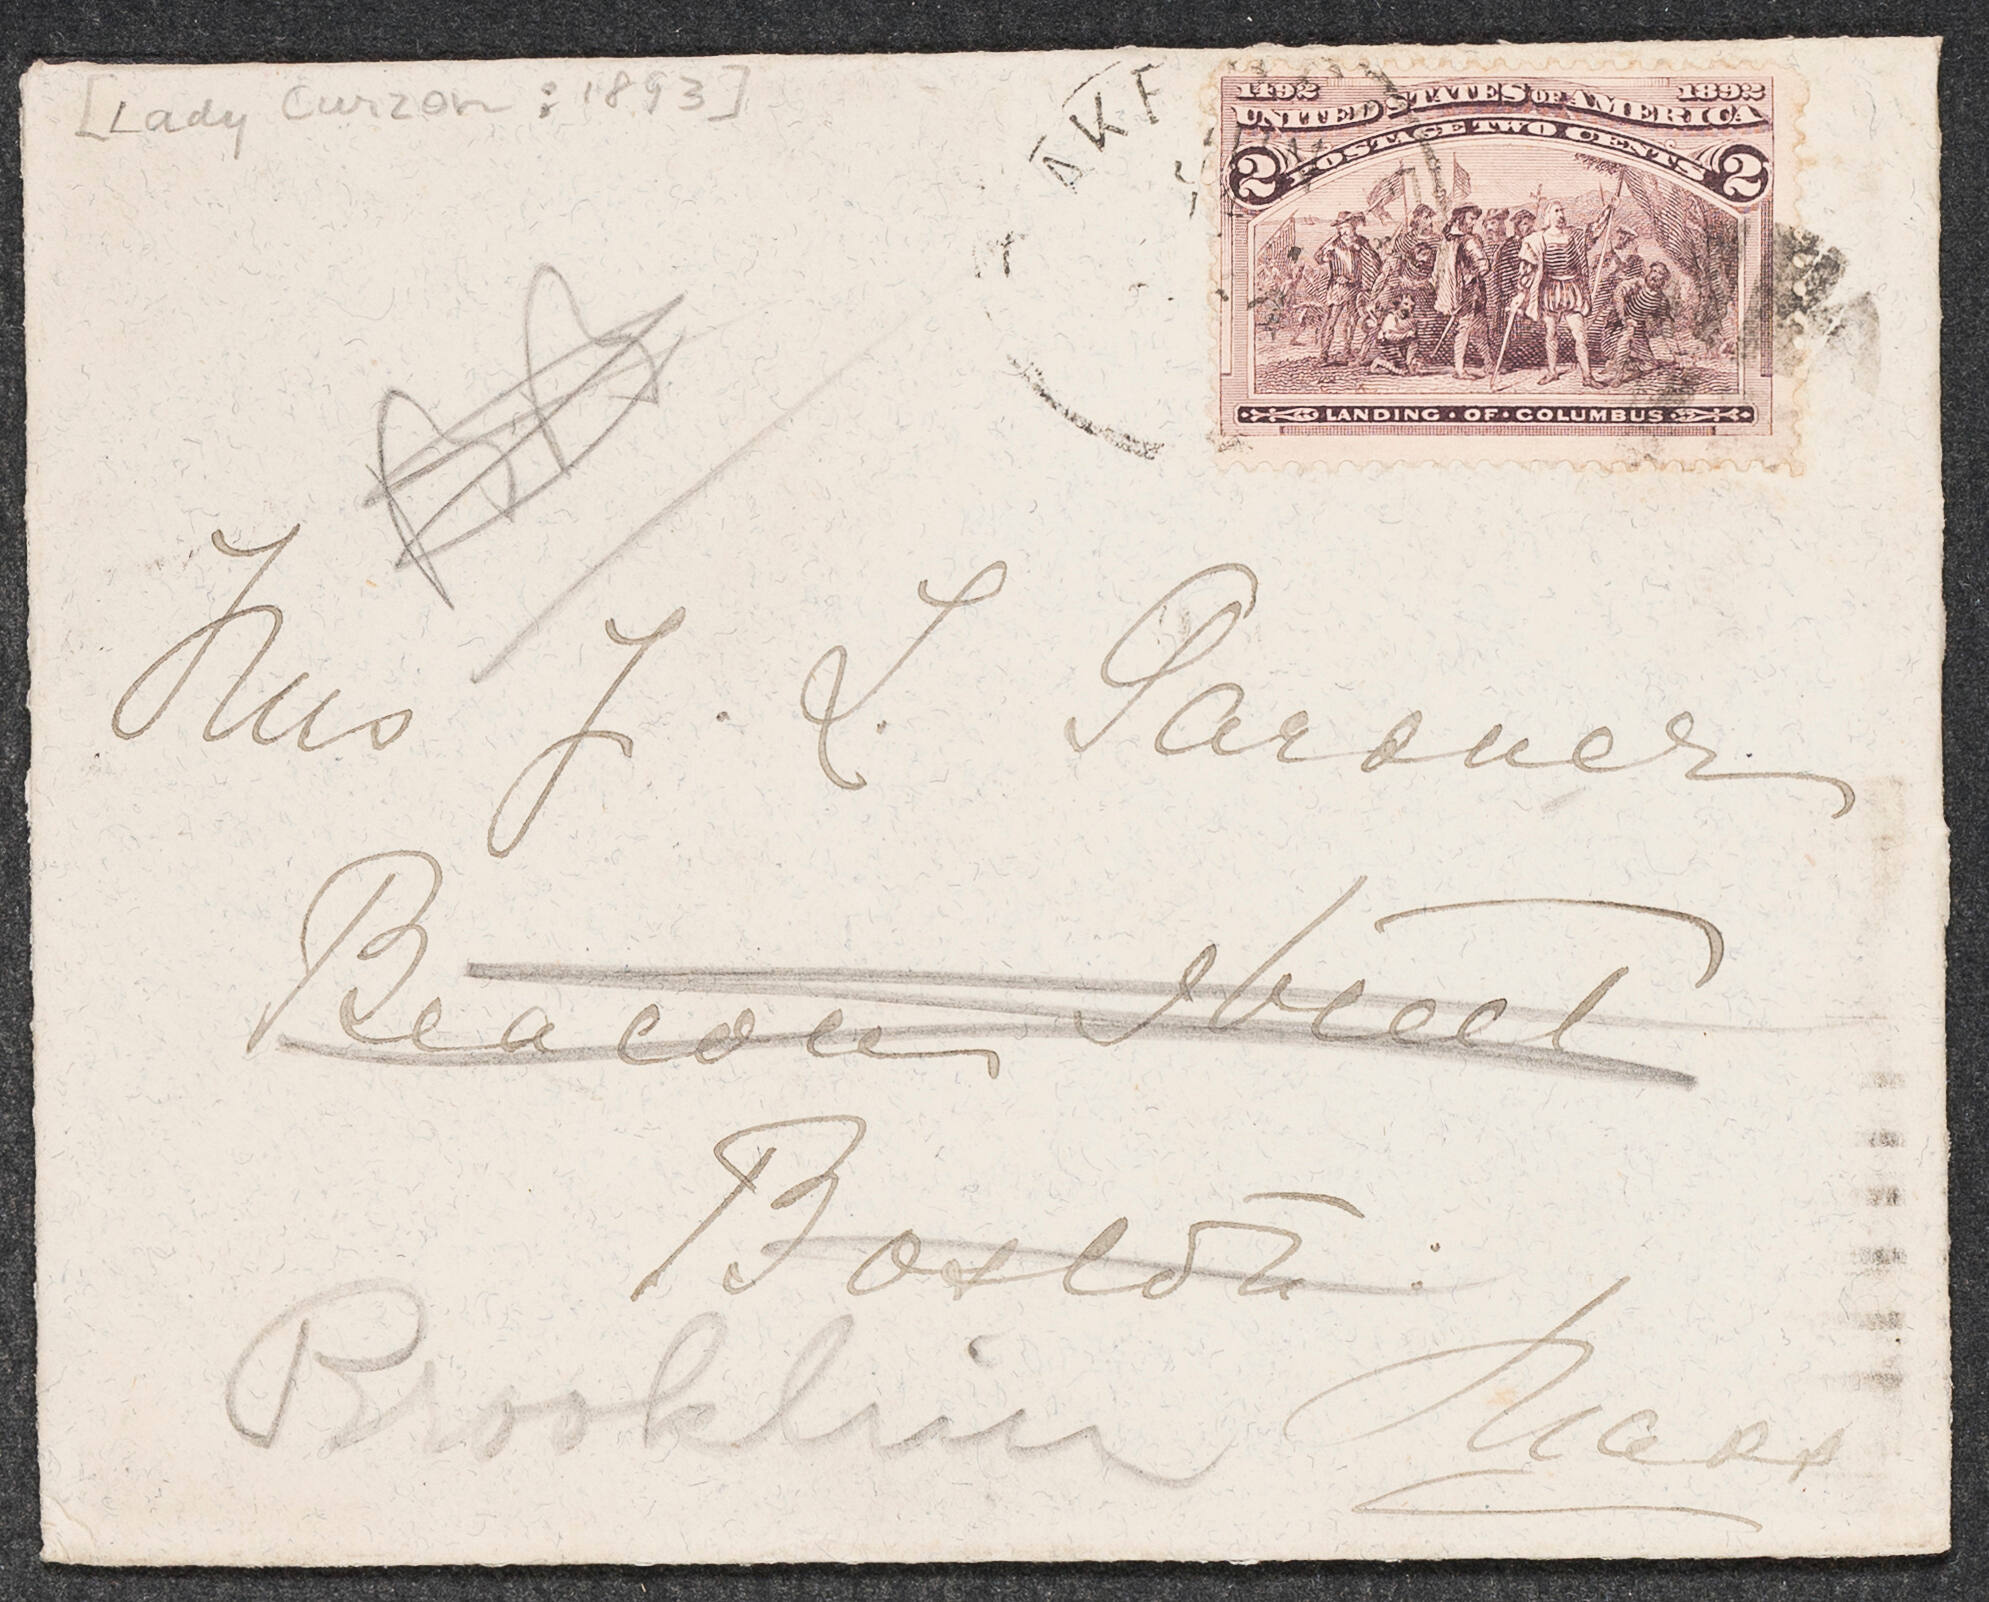 [Lady Curzon : 1893]
AKF
1492 1892
UNITED STATES OF AMERICA
POSTAGE TWO CENTS
2 2
LANDING · OF · COLUMBUS
Mrs J. L. Gardner
Beacon Street
Boston.
Brookline Mass